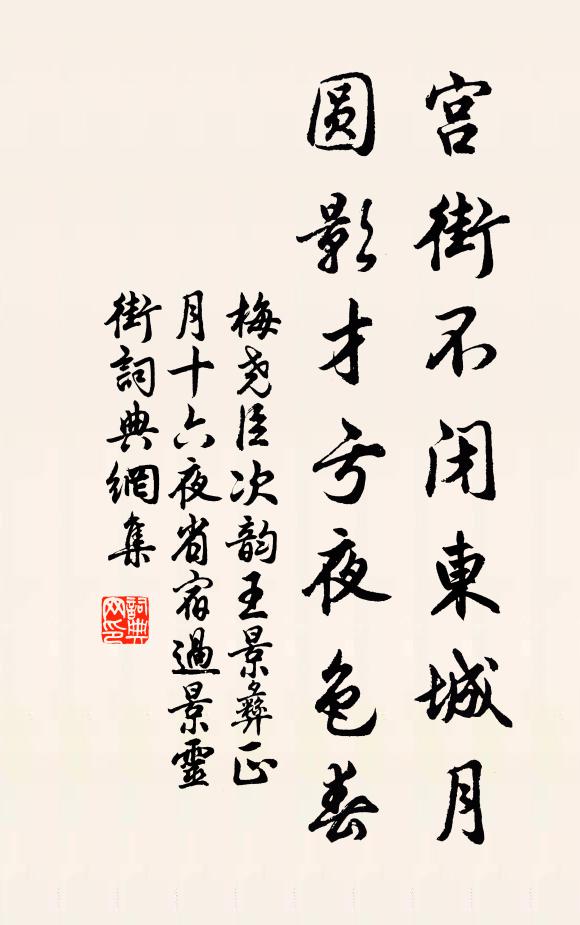 宫街不闭東城月
圆影才亏夜色春
梅尧臣次韵王景彝正
月十六夜省宿過景靈
街詞典網集
詞典
网印